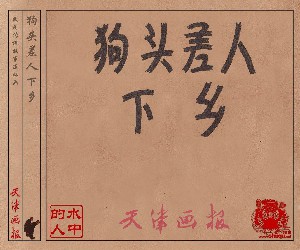 狗头差人
下乡
天津画报
水中
的人
狗头差人下乡
天津画报